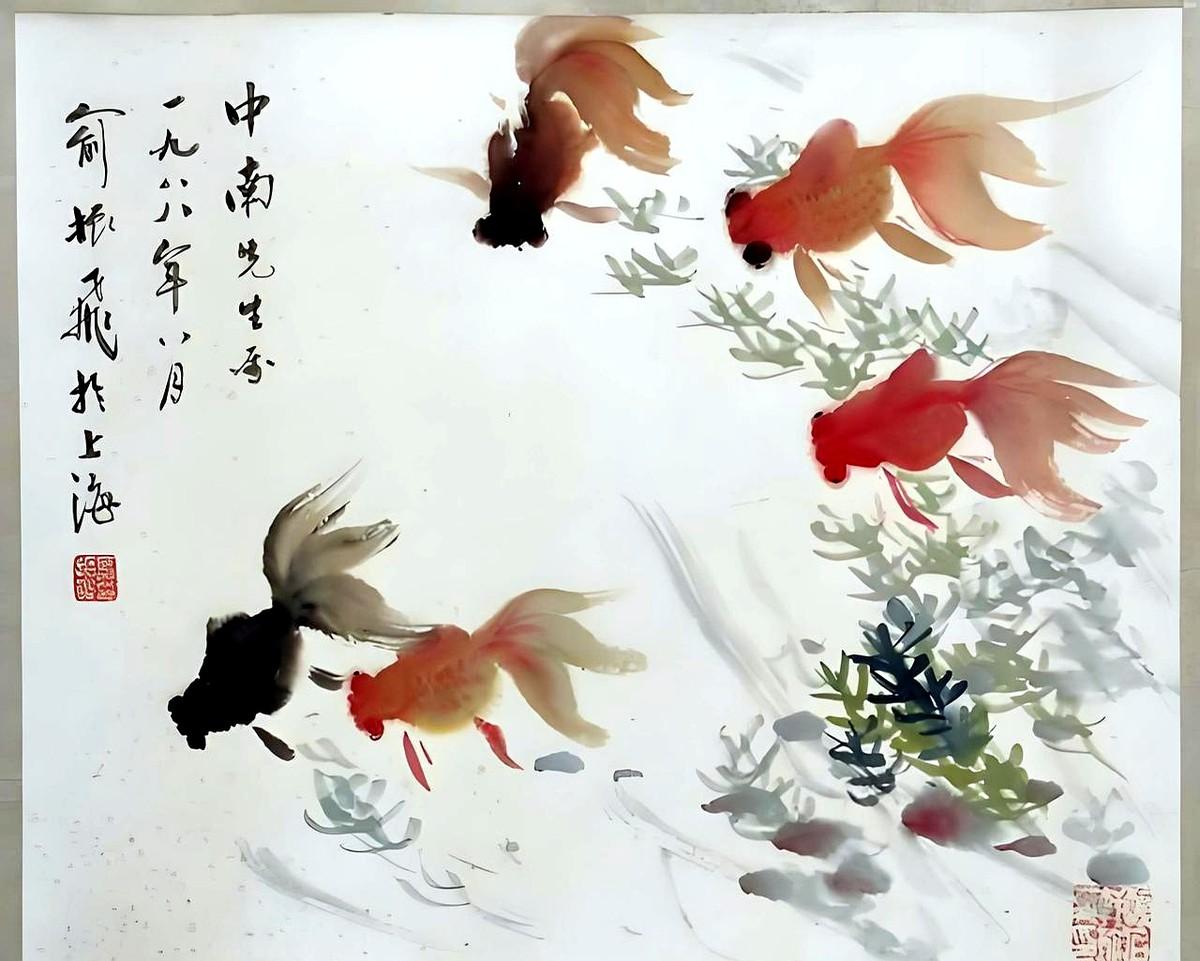 中南先生属
一九八八年八月
俞振飛於上海